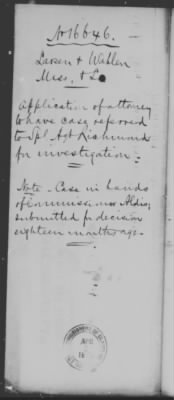 No 16646.
Larsen & Wahlen
Miss. & La
Application of attorney
to have case referred
to Spl. Agt Richmond
for investigation.
Note - Case in hands
of Commissioner Aldis;
submitted for decision
eighteen months ago.